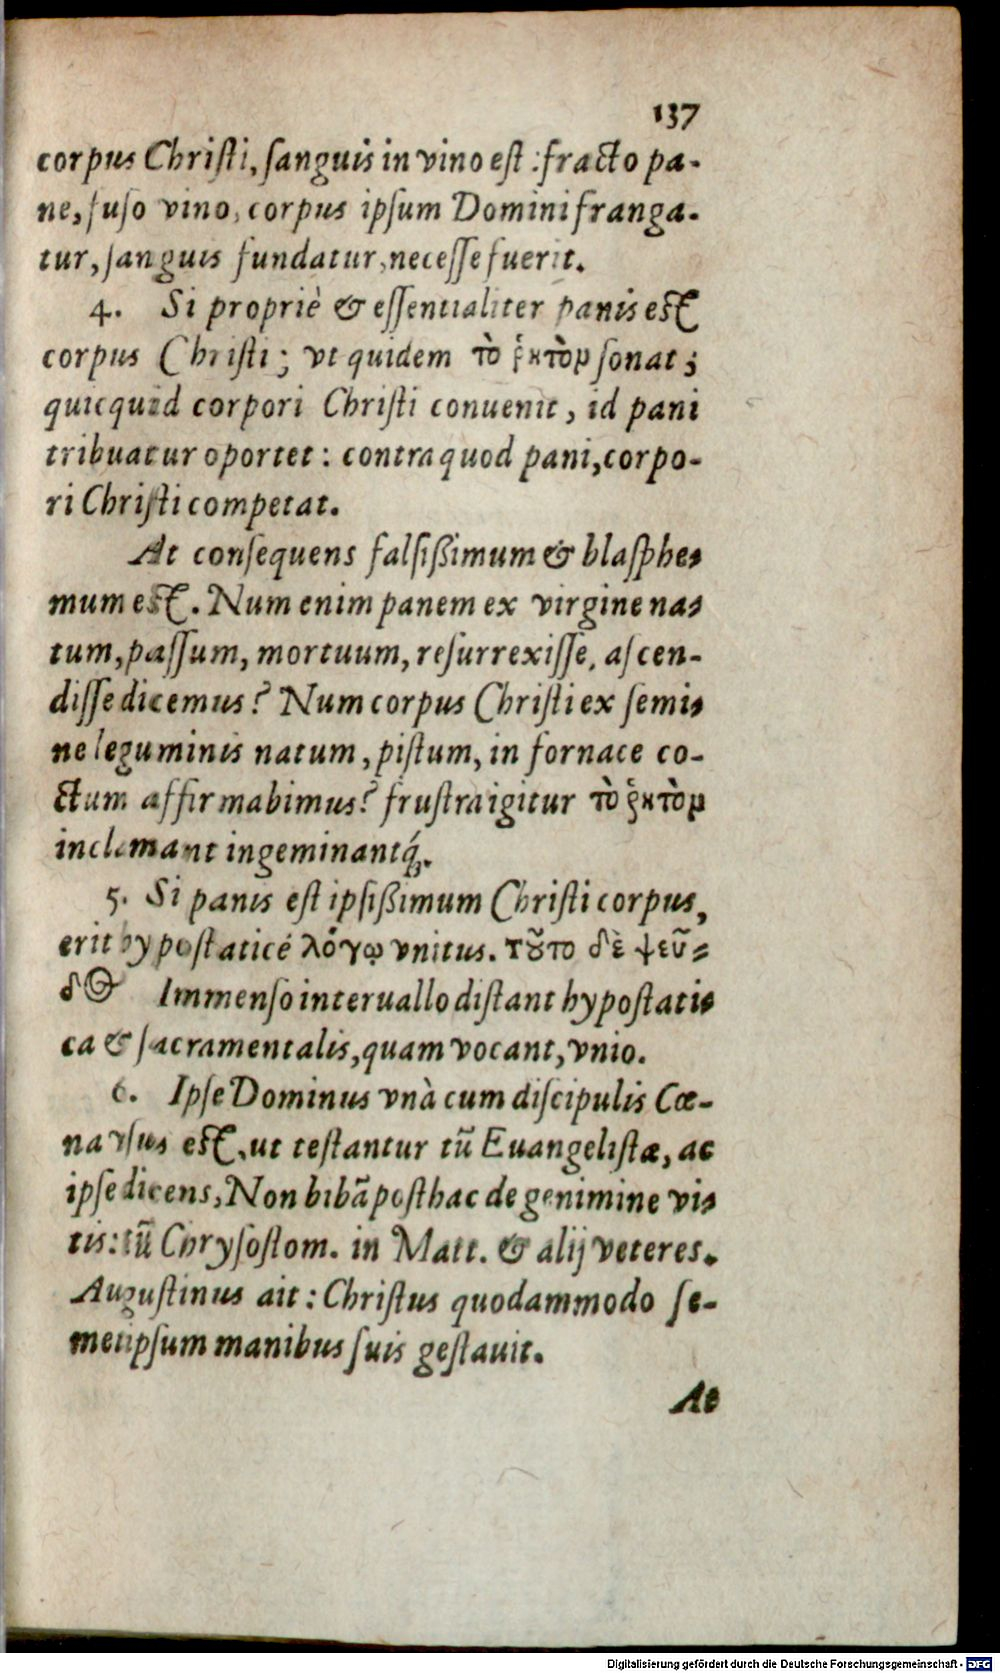 137
corpus Chriſti, ſanguis in vino eſt : fracto pa-
ne, fuſo vino, corpus ipſum Domini franga-
tur, ſanguis fundatur, neceſſe fuerit.
4. Si propriè & eſſentialiter panis eſt
corpus Chriſti; vt quidem τὸ ῥητὸν ſonat;
quicquid corpori Chriſti conuenit, id pani
tribuatur oportet : contra quod pani, corpo-
ri Chriſti competat.
At conſequens falſiſſimum & blaſphe-
mum eſt. Num enim panem ex virgine na-
tum, paſſum, mortuum, reſurrexiſſe, aſcen-
diſſe dicemus? Num corpus Chriſti ex ſemi-
ne leguminis natum, piſtum, in fornace co-
ctum affirmabimus? fruſtra igitur τὸ ῥητὸν
inclamant ingeminantq́;.
5. Si panis eſt ipſiſſimum Chriſti corpus,
erit hypoſtaticé λόγῳ vnitus. τοῦτο δὲ ψεῦ-
δος Immenſo interuallo diſtant hypoſtati-
ca & ſacramentalis, quam vocant, vnio.
6. Ipſe Dominus vnà cum diſcipulis Cœ-
na vſus eſt, ut teſtantur tū Euangeliſtæ, ac
ipſe dicens, Non bibā poſthac de genimine vi-
tis: tū Chryſoſtom. in Matt. & alij veteres.
Auguſtinus ait : Chriſtus quodammodo ſe-
metipſum manibus ſuis geſtauit.
At
Digitalisierung gefördert durch die Deutsche Forschungsgemeinschaft - DFG